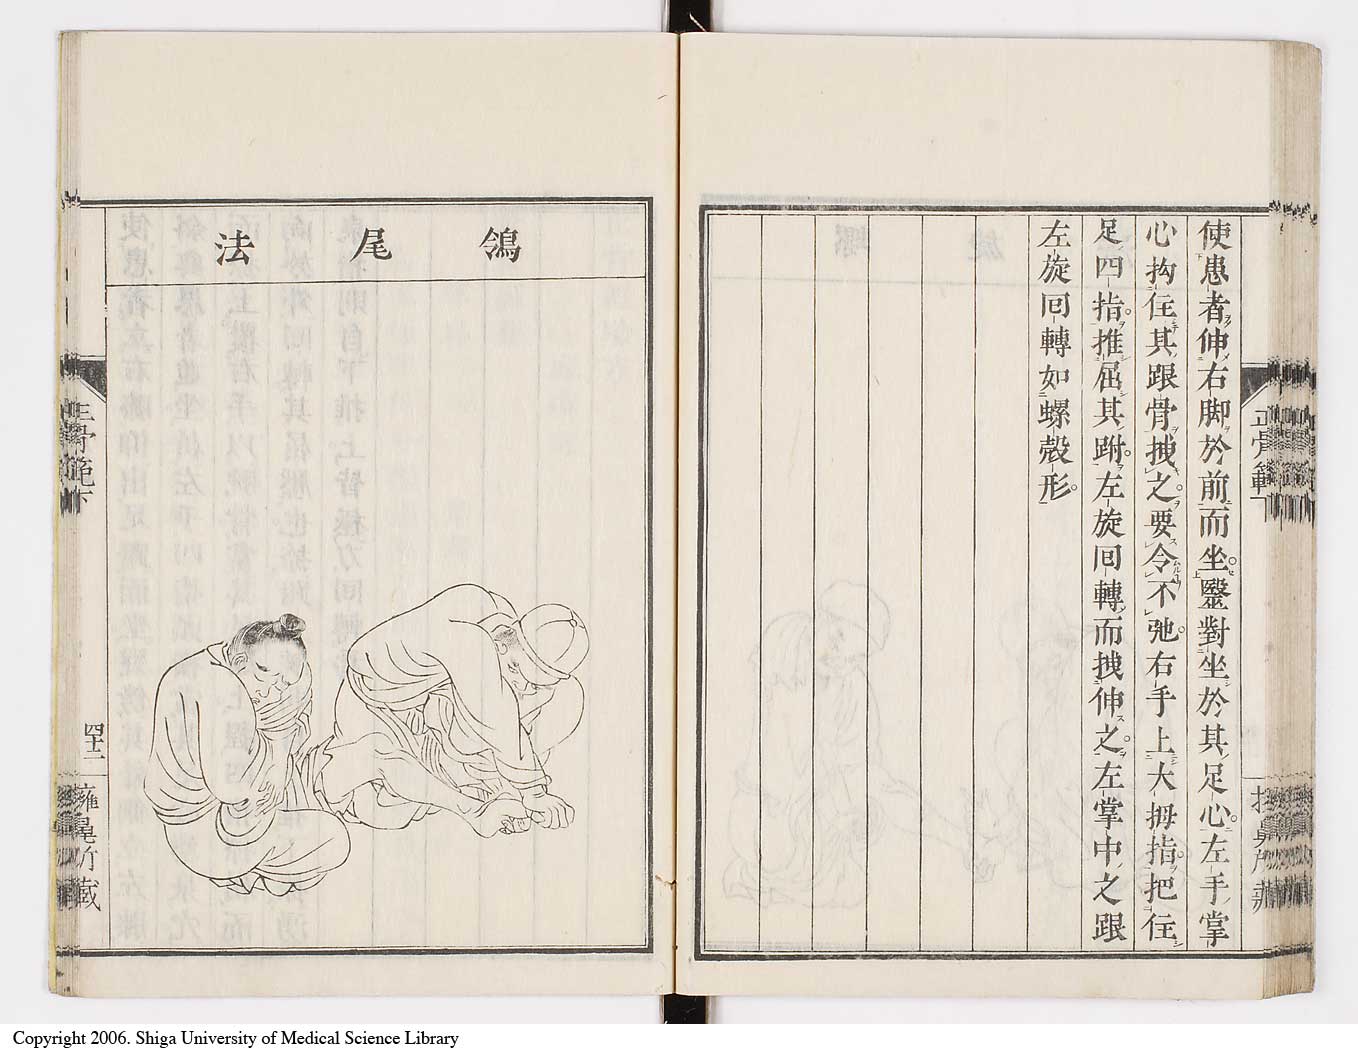 使患者伸右脚於前而坐醫對坐於其足心左手掌
心抅住其跟骨拽之要令不弛右手上大拇指把住
足四指推屈其跗左旋回轉而拽伸之左掌中之跟
左旋回轉如螺殼形
正骨範下
鴿尾法
正骨範下
四十二
Copyright 2006. Shiga University of Medical Science Library